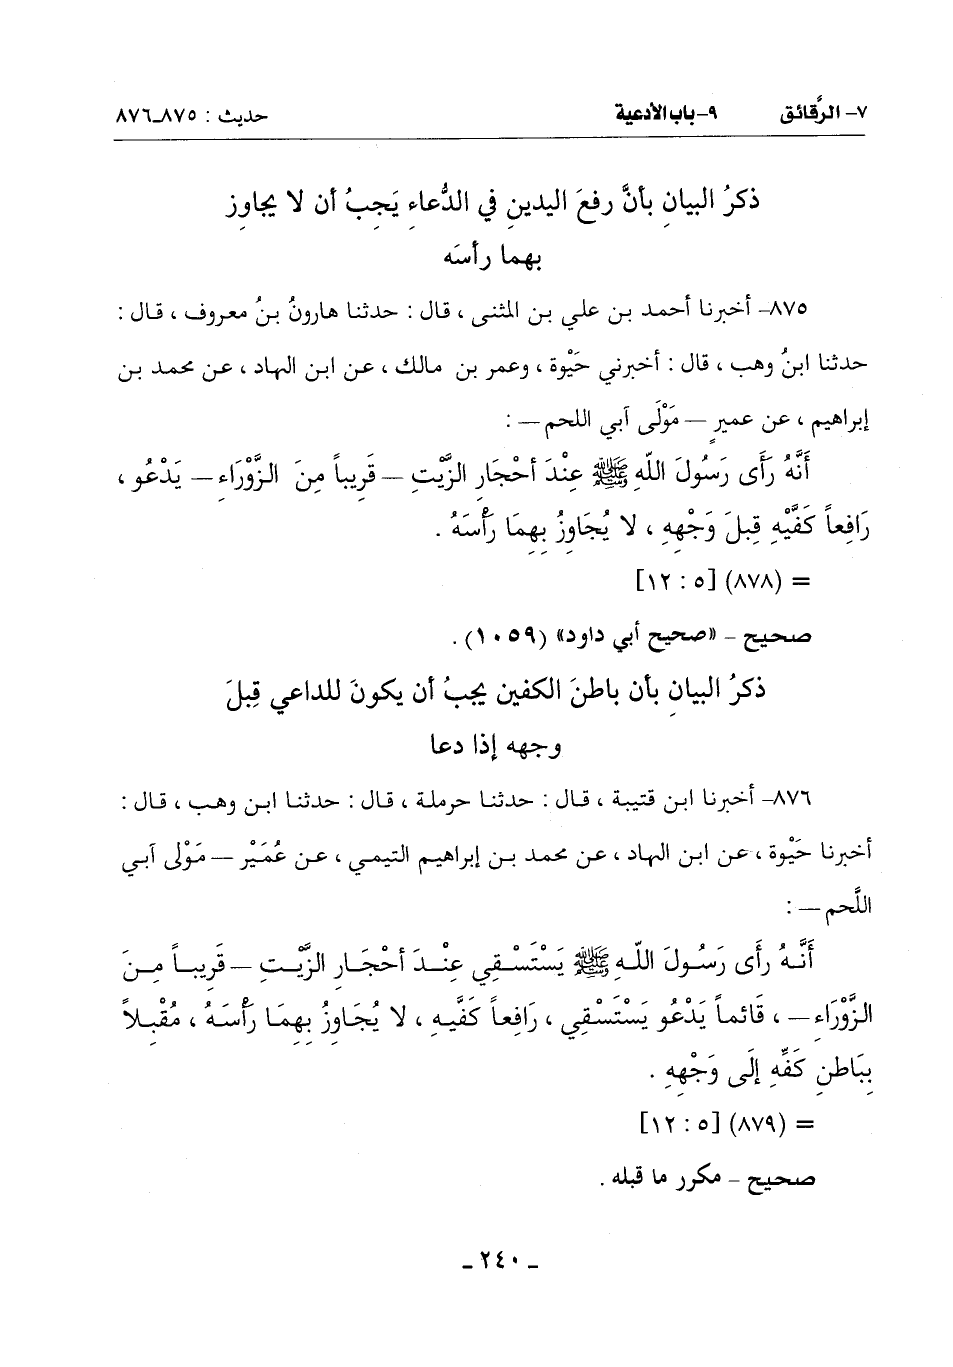 ٧- الرَّقائق ٩-باب الأدعية حديث : ٨٧٥ـ٨٧٦
ذكرُ البيانِ بأنَّ رفعَ اليدينِ في الدُّعاءِ يَجِبُ أن لا يجاوِز
بهما رأسَه
٨٧٥- أخبرنا أحمد بن علي بن المثنى ، قال : حدثنا هارونُ بنُ معروف ، قال :
حدثنا ابنُ وهب ، قال : أخبرني حَيْوة ، وعمر بن مالك ، عن ابن الهاد ، عن محمد بن
إبراهيم ، عن عميرٍ – مَوْلَى آبي اللحم – :
أَنَّهُ رَأَى رَسُولَ اللَّهِ ﷺ عِنْدَ أَحْجَارِ الزَّيْتِ – قَرِيباً مِنَ الزَّوْرَاءِ – يَدْعُو ،
رَافِعاً كَفَّيْهِ قِبلَ وَجْهِهِ ، لا يُجَاوِزُ بِهِمَا رَأْسَهُ .
= (٨٧٨) [٥ : ١٢]
صحيح - «صحيح أبي داود» (١٠٥٩) .
ذكرُ البيانِ بأن باطنَ الكفين يجبُ أن يكونَ للداعي قِبلَ
وجهه إذا دعا
٨٧٦- أخبرنا ابن قتيبة ، قال : حدثنا حرملة ، قال : حدثنا ابن وهب ، قال :
أخبرنا حَيْوة ، عن ابن الهاد ، عن محمد بن إبراهيم التيمي ، عن عُمَيْر – مَوْلى آبي
اللَّحم – :
أَنَّهُ رأَى رَسُولَ اللَّهِ ﷺ يَسْتَسْقِي عِنْدَ أَحْجَارِ الزَّيْتِ – قَرِيباً مِنَ
الزَّوْرَاءِ – ، قَائماً يَدْعُو يَسْتَسْقِي ، رَافعاً كَفَّيهِ ، لا يُجَاوِزُ بِهِمَا رَأْسَهُ ، مُقْبلاً
بِبَاطنِ كَفِّهِ إلَى وَجْهِهِ .
= (٨٧٩) [٥ : ١٢]
صحيح - مكرر ما قبله .
- ٢٤٠ -